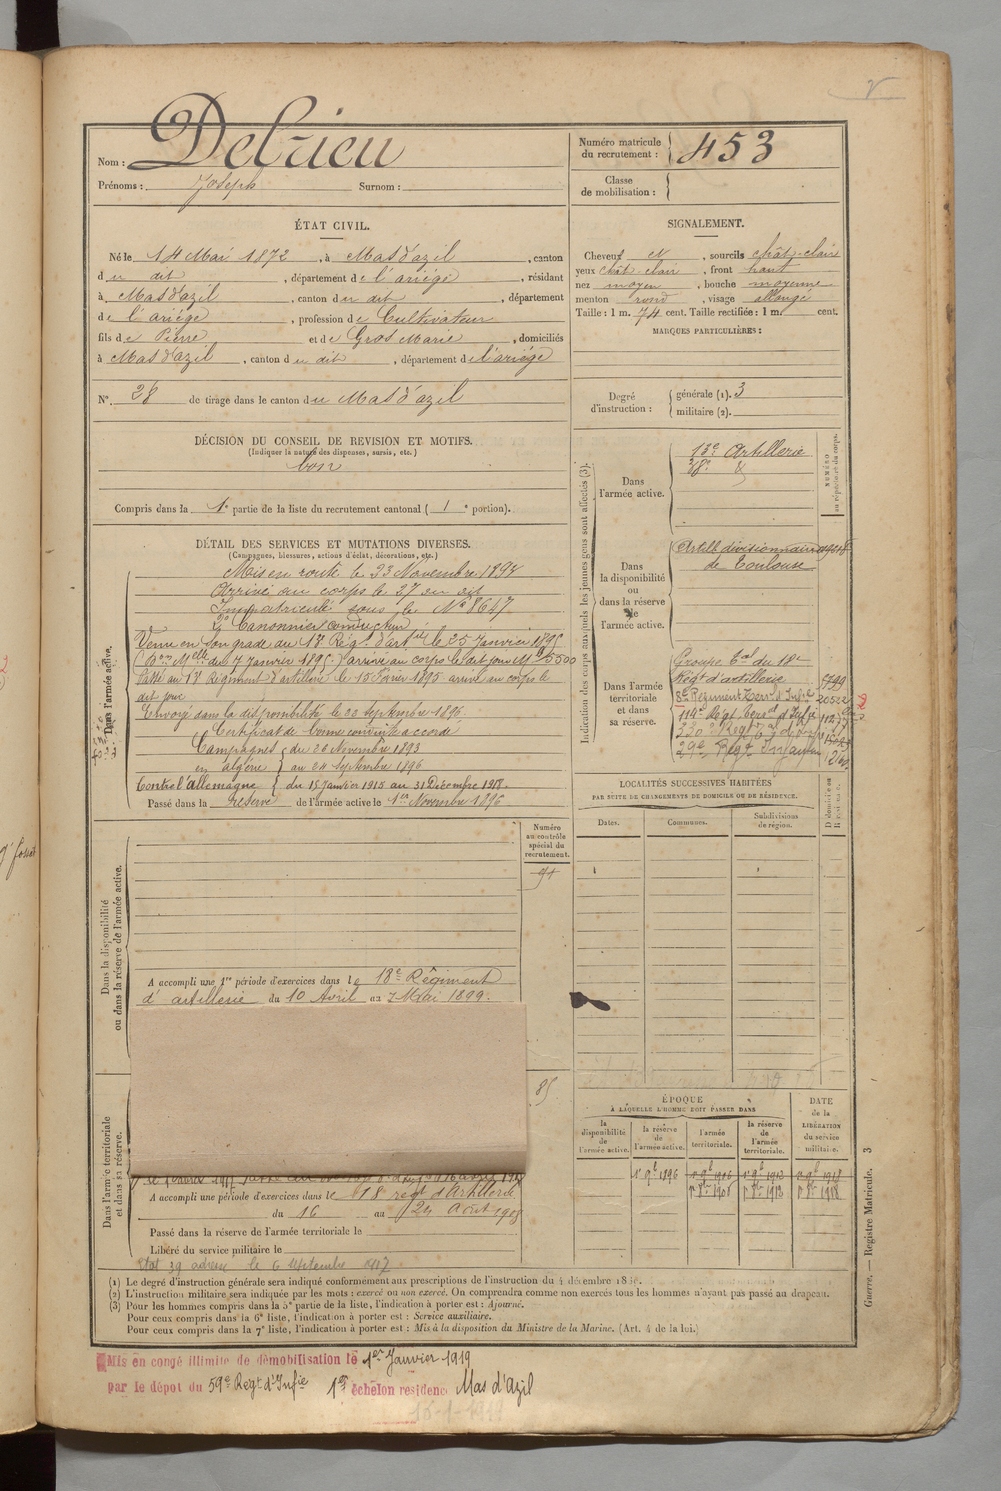 Nom : Delrieu
Prénoms : Joseph Surnom :
Numéro matricule du recrutement : 453
Classe de mobilisation :
ÉTAT CIVIL.
Né le 14 Mai 1872, à Mas d'azil, canton
du dit, département de l'ariége, résidant
à Mas d'azil, canton du dit, département
de l'ariége, profession de Cultivateur
fils de Pierre et de Gros Marie, domiciliés
à Mas d'azil, canton du dit, département de l'ariége
N° 28 de tirage dans le canton du Mas d'azil
SIGNALEMENT.
Cheveux et, sourcils chât-clair
yeux chât-clair, front haut
nez moyen, bouche moyenne
menton rond, visage allongé
Taille : 1 m. 74 cent. Taille rectifiée : 1 m. cent.
MARQUES PARTICULIÈRES :
Degré d'instruction : générale (1). 3
militaire (2).
DÉCISION DU CONSEIL DE REVISION ET MOTIFS.
(Indiquer la nature des dispenses, sursis, etc.)
bon
Compris dans la 1e partie de la liste du recrutement cantonal (1e portion).
DÉTAIL DES SERVICES ET MUTATIONS DIVERSES.
(Campagnes, blessures, actions d'éclat, décorations, etc.)
Dans l'armée active.
Mis en route le 23 Novembre 1893
Arrivé au corps le 27 du dit
Immatriculé sous le N° 8647
2e Canonnier conducteur
Venu en son grade au 18e Régt d'artie le 25 Janvier 1895
arrivé au corps le dit jour 5500
Passé au 13e Régiment d'artillerie le 15 Février 1895 arrivé au corps le
dit jour
Envoyé dans la disponibilité le 22 Septembre 1896.
Certificat de bonne conduite accordé
Campagnes du 26 Novembre 1893
en algérie au 24 Septembre 1896
Contre l'allemagne du 15 Janvier 1915 au 31 Décembre 1918.
Passé dans la réserve de l'armée active le 1er Novembre 1896
Indication des corps auxquels les jeunes gens sont affectés (3).
NUMÉRO au répertoire du corps.
Dans l'armée active.
13e Artillerie
Dans la disponibilité ou dans la réserve de l'armée active.
Artill divisionnaire
de Toulouse
Dans l'armée territoriale et dans sa réserve.
Groupe Tal du 18e
Régt d'artillerie 5799
8e Régiment Terral d'Infie 20522
119e Régt Terral d'Infie
330e Régt
LOCALITÉS SUCCESSIVES HABITÉES
PAR SUITE DE CHANGEMENTS DE DOMICILE OU DE RÉSIDENCE.
Dates. Communes. Subdivisions de région.
Dans la disponibilité ou dans la réserve de l'armée active.
Numéro au contrôle spécial du recrutement.
A accompli une 1re période d'exercices dans le 18e Régiment
d'artillerie du 10 Avril au 7 Mai 1899.
85
ÉPOQUE
À LAQUELLE L'HOMME DOIT PASSER DANS
la disponibilité de l'armée active. la réserve de l'armée active. l'armée territoriale. la réserve de l'armée territoriale.
DATE de la LIBÉRATION du service militaire.
1er 9bre 1896 1er 9bre 1906 1er 9bre 1912 1er 9bre 1918
Dans l'armée territoriale et dans sa réserve.
A accompli une période d'exercices dans le 18 régt d'Artillerie
du 16 au 24 Août 1908
Passé dans la réserve de l'armée territoriale le
Libéré du service militaire le
le 6 Septembre 1917
(1) Le degré d'instruction générale sera indiqué conformément aux prescriptions de l'instruction du 4 décembre 1889.
(2) L'instruction militaire sera indiquée par les mots : exercé ou non exercé. On comprendra comme non exercés tous les hommes n'ayant pas passé au drapeau.
(3) Pour les hommes compris dans la 5e partie de la liste, l'indication à porter est : Ajourné.
Pour ceux compris dans la 6e liste, l'indication à porter est : Service auxiliaire.
Pour ceux compris dans la 7e liste, l'indication à porter est : Mis à la disposition du Ministre de la Marine. (Art. 4 de la loi.)
Guerre. — Registre Matricule. 3
Mis en congé illimité de démobilisation le 1er Janvier 1919
par le dépôt du 59e Régt d'Infie 1er échelon résidence Mas d'Azil